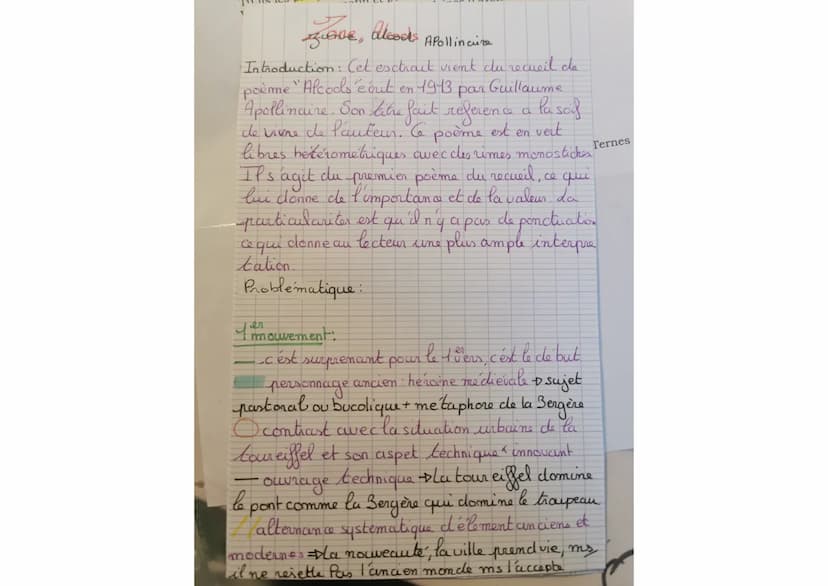 Zone, Alcools Apollinaire
Introduction : Cet esctrait vient du recueil de
poème "Alcools" écrit en 1913 par Guillaume
Apollinaire. Son titre fait référence a la soif
de vivre de l'auteur. Ce poème est en vert
libres hétérométriques avec des rimes monostiches
Il s'agit du premier poème du recueil, ce qui
lui donne de l'importance et de la valeur. La
particularites est qu'il n'y a pas de ponctuation
ce qui donne au lecteur une plus ample interpre
tation.
Problématique :
1er mouvement :
— c'est surprenant pour le 1er vers, c'est le début
personnage ancien : héroïne médiévale → sujet
pastoral ou bucolique + métaphore de la Bergère
contrast avec la situation urbaine de la
tour eiffel et son aspet technique innovant
— ouvrage technique → La tour eiffel domine
le pont comme la Bergère qui domine le troupeau
// alternance systématique d'élément anciens et
modernes ⇒ La nouveauté, la ville prend vie, ms
il ne rejette Pas l'ancien monde ms l'accepte
Ternes